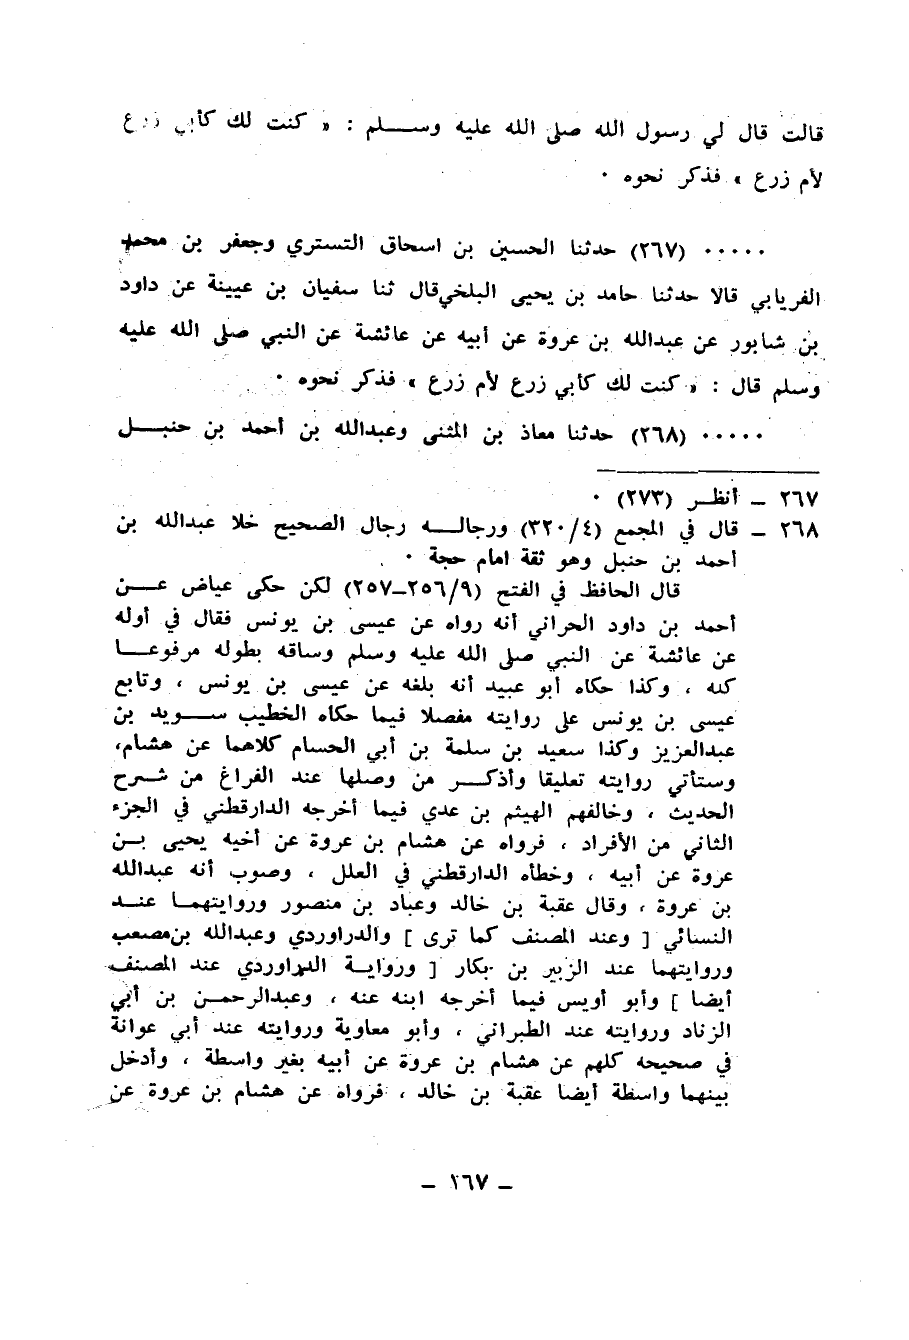 قالت قال لي رسول الله صلى الله عليه وسلم : « كنت لك كأبي زرع
لأم زرع » فذكر نحوه ٠
٠٠٠٠٠ (٢٦٧) حدثنا الحسين بن اسحاق التستري وجعفر بن محمد
الفريابي قالا حدثنا حامد بن يحيى البلخي قال ثنا سفيان بن عيينة عن داود
بن شابور عن عبدالله بن عروة عن أبيه عن عائشة عن النبي صلى الله عليه
وسلم قال : « كنت لك كأبي زرع لأم زرع » فذكر نحوه ٠
٠٠٠٠٠ (٢٦٨) حدثنا معاذ بن المثنى وعبدالله بن أحمد بن حنبل
٢٦٧ ــ أنظر (٢٧٣) ٠
٢٦٨ ــ قال في المجمع (٤/٣٢٠) ورجاله رجال الصحيح خلا عبدالله بن
أحمد بن حنبل وهو ثقة امام حجة ٠
قال الحافظ في الفتح (٩/٢٥٦ــ٢٥٧) لكن حكى عياض عن
أحمد بن داود الحراني أنه رواه عن عيسى بن يونس فقال في أوله
عن عائشة عن النبي صلى الله عليه وسلم وساقه بطوله مرفوعا
كله ، وكذا حكاه أبو عبيد أنه بلغه عن عيسى بن يونس ، وتابع
عيسى بن يونس على روايته مفصلا فيما حكاه الخطيب سويد بن
عبدالعزيز وكذا سعيد بن سلمة بن أبي الحسام كلاهما عن هشام،
وستأتي روايته تعليقا وأذكر من وصلها عند الفراغ من شرح
الحديث ، وخالفهم الهيثم بن عدي فيما أخرجه الدارقطني في الجزء
الثاني من الأفراد ، فرواه عن هشام بن عروة عن أخيه يحيى بن
عروة عن أبيه ، وخطأه الدارقطني في العلل ، وصوب أنه عبدالله
بن عروة ، وقال عقبة بن خالد وعباد بن منصور وروايتهما عند
النسائي [ وعند المصنف كما ترى ] والدراوردي وعبدالله بن مصعب
وروايتهما عند الزبير بن بكار [ ورواية الدراوردي عند المصنف
أيضا ] وأبو أويس فيما أخرجه ابنه عنه ، وعبدالرحمن بن أبي
الزناد وروايته عند الطبراني ، وأبو معاوية وروايته عند أبي عوانة
في صحيحه كلهم عن هشام بن عروة عن أبيه بغير واسطة ، وأدخل
بينهما واسطة أيضا عقبة بن خالد ، فرواه عن هشام بن عروة عن
ــ ٢٦٧ ــ